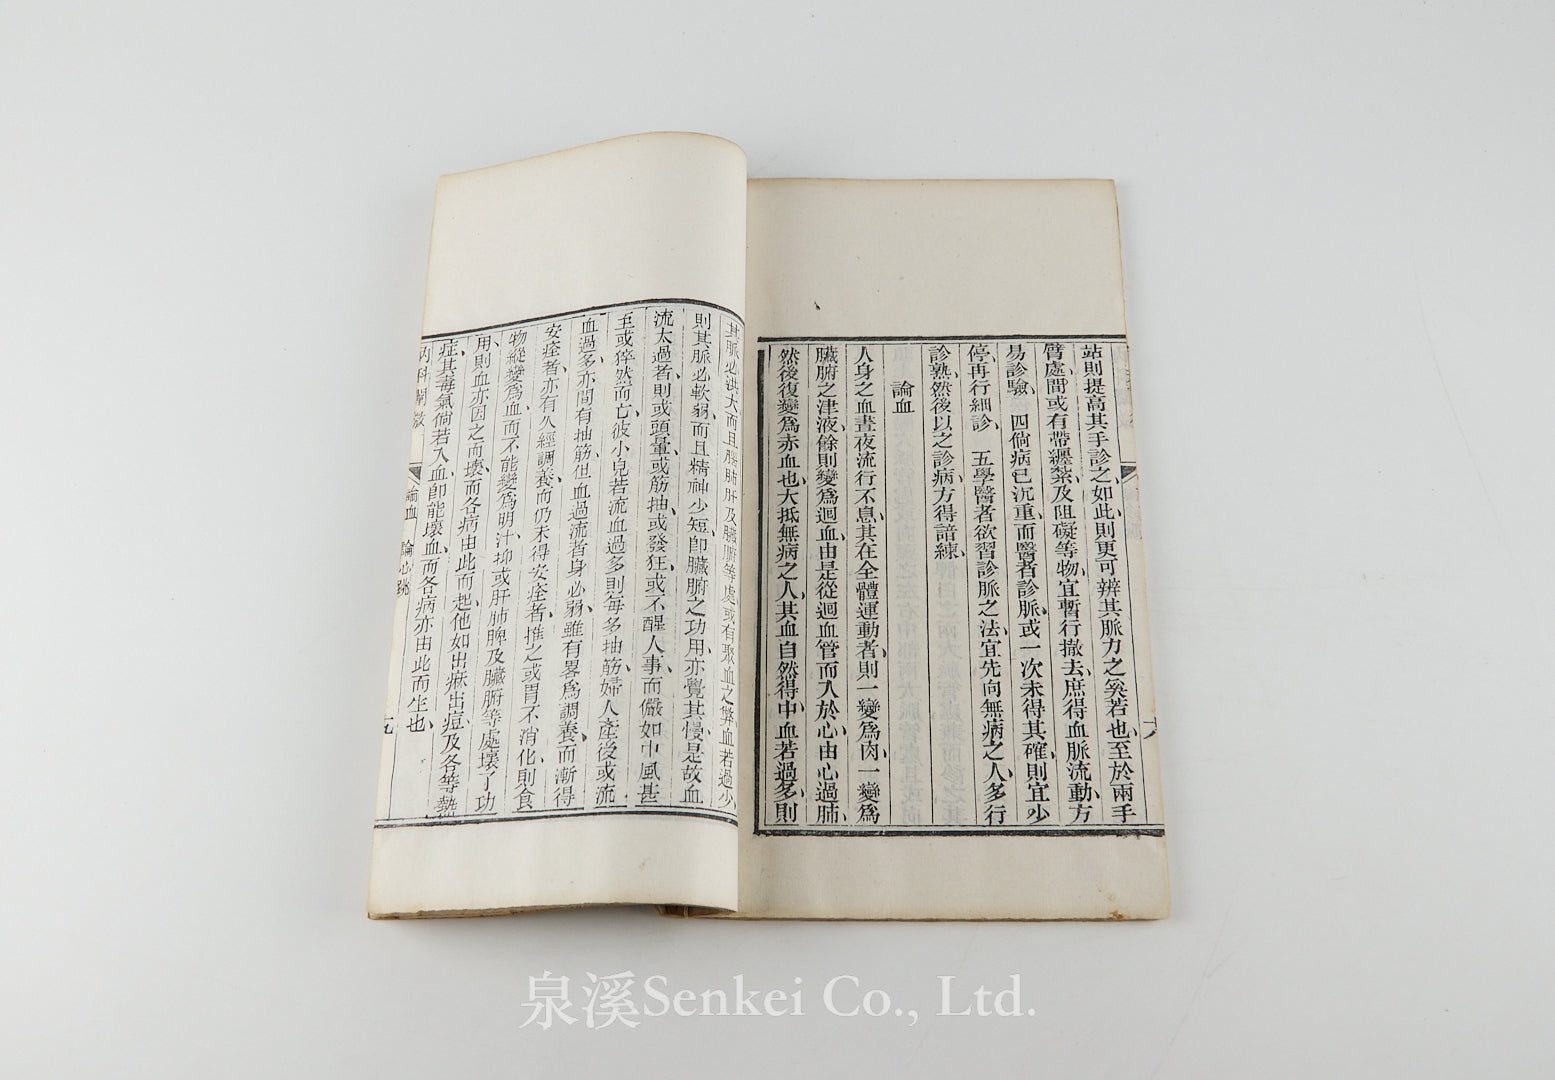 站則提高其手診之、如此則更可辨其脈力之奚若也、至於兩手
臂處、間或有帶纏紮、及阻礙等物、宜暫行撤去、庶得血脈流動、方
易診驗、四倘病已沉重、而醫者診脈、或一次未得其確、則宜少
停、再行細診、五學醫者、欲習診脈之法、宜先向無病之人、多行
診熟、然後以之診病、方得諳練、
論血
人身之血、晝夜流行不息、其在全體運動者、則一變爲肉、一變爲
臟腑之津液、餘則變爲迴血、由是從迴血管而入於心、由心過肺、
然後復變爲赤血也、大抵無病之人、其血自然得中、血若過多、則
其脈必洪大、而且肺肝及臟腑等處、或有聚血之弊、血若過少、
則其脈必軟弱、而且精神少短、卽臟腑之功用、亦覺其慢、是故血
流太過者、則或頭暈、或筋抽、或發狂、或不醒人事、而儼如中風、甚
至或猝然而亡、彼小兒若流血過多、則每多抽筋、婦人產後、或流
血過多、亦間有抽筋、但血過流者、身必弱、雖有畧爲調養、而漸得
安痊者、亦有久經調養、而仍未得安痊者、推之或胃不消化、則食
物縱變爲血、而不能變爲明汁、抑或肝肺脾及臟腑等處、壞了功
用、則血亦因之而壞、而各病由此而起、他如出痳、出痘、及各等熱
症、其毒氣倘若入血、卽能壞血、而各病亦由此而生也、
內科闡微
論血
論心跳
九
泉溪Senkei Co., Ltd.